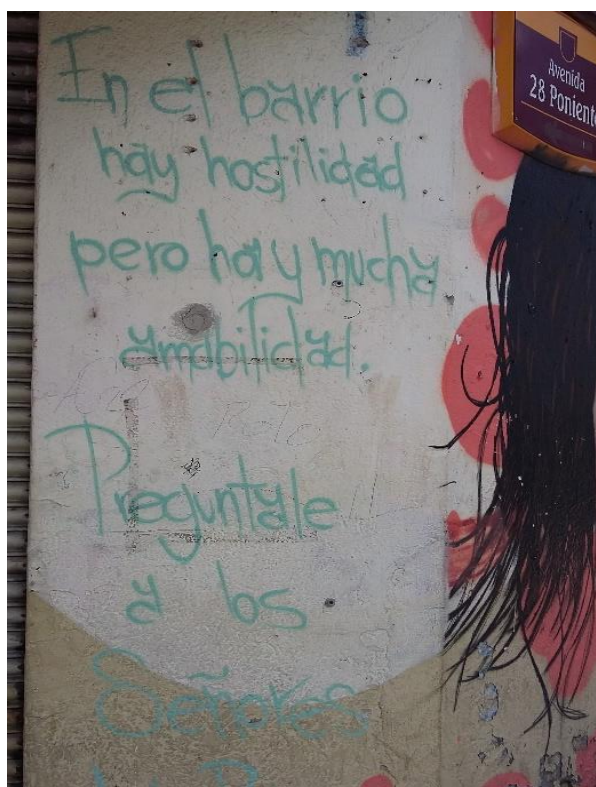 In el barrio
hay hostilidad
pero hay mucha
amabilidad.
Preguntale
a los
Señores
Avenida
28 Poniente